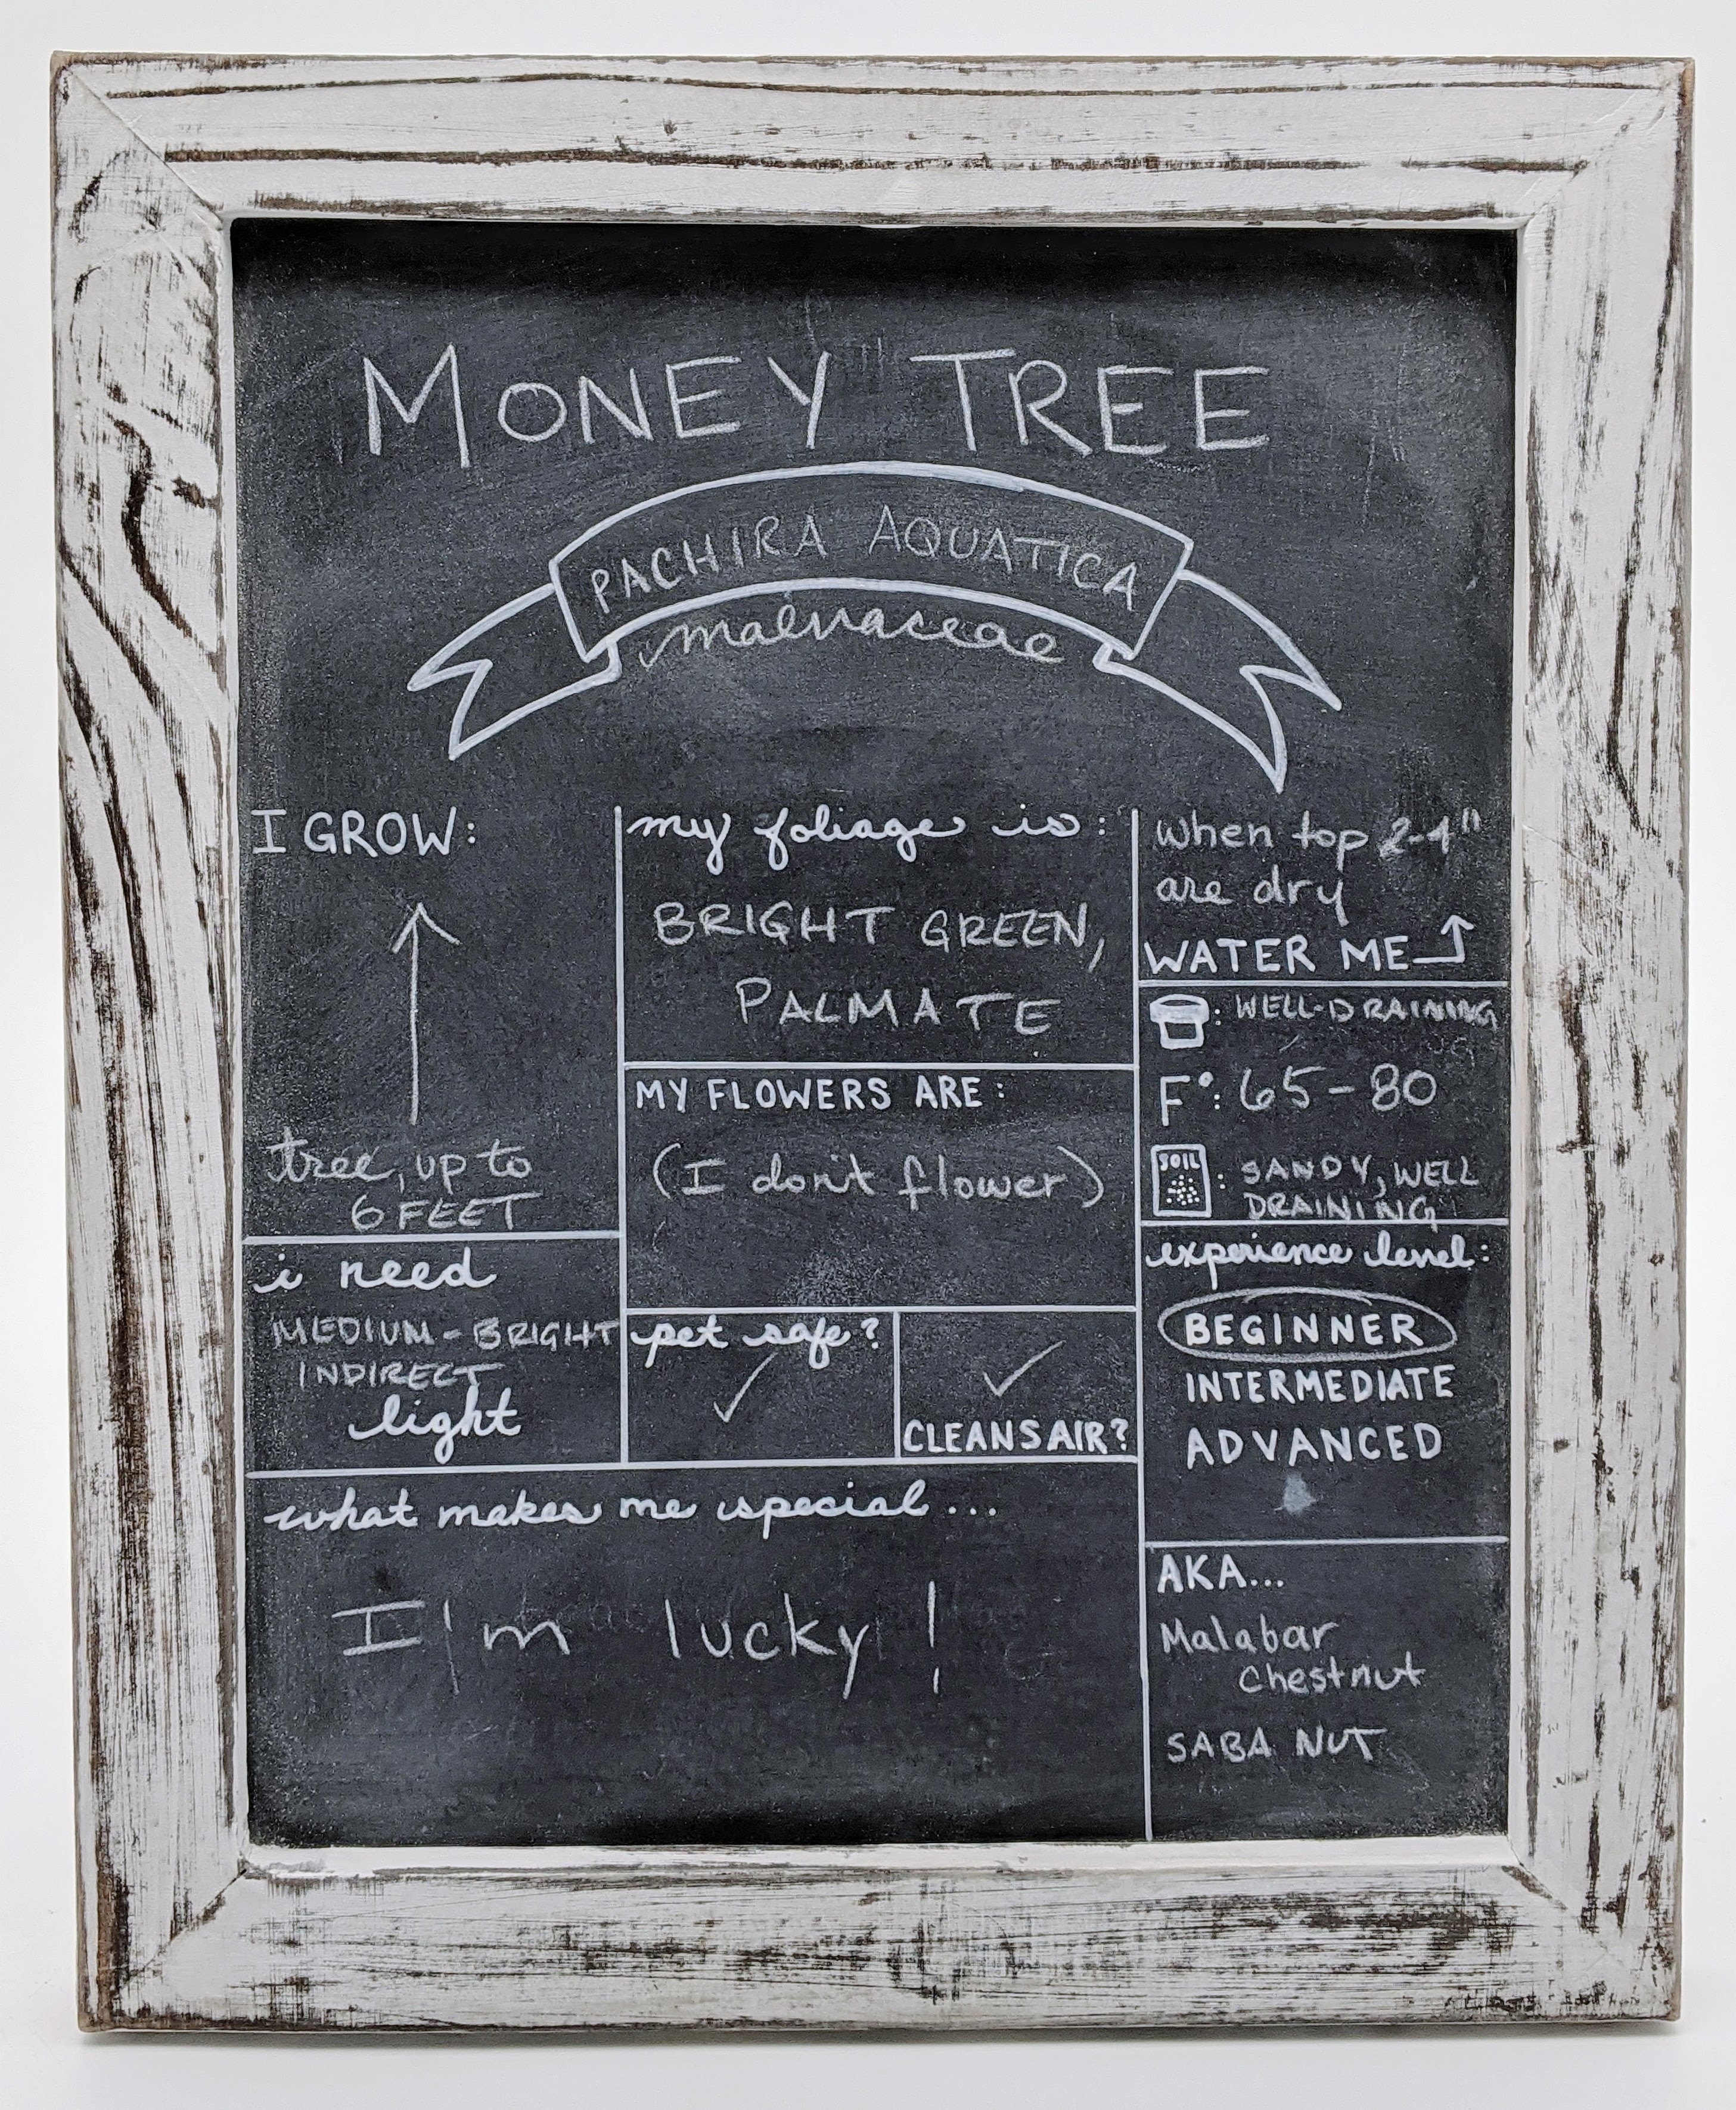 MONEY TREE
PACHIRA AQUATICA
malvaceae
I GROW:
tree, up to
6 FEET
i need
MEDIUM-BRIGHT
INDIRECT
light
my foliage is:
BRIGHT GREEN,
PALMATE
MY FLOWERS ARE:
(I don't flower)
pet safe?
CLEANS AIR?
what makes me special...
I'm lucky!
when top 2-4"
are dry
WATER ME
: WELL-DRAINING
F°: 65-80
SOIL
: SANDY, WELL
DRAINING
experience level:
BEGINNER
INTERMEDIATE
ADVANCED
AKA...
Malabar
Chestnut
SABA NUT